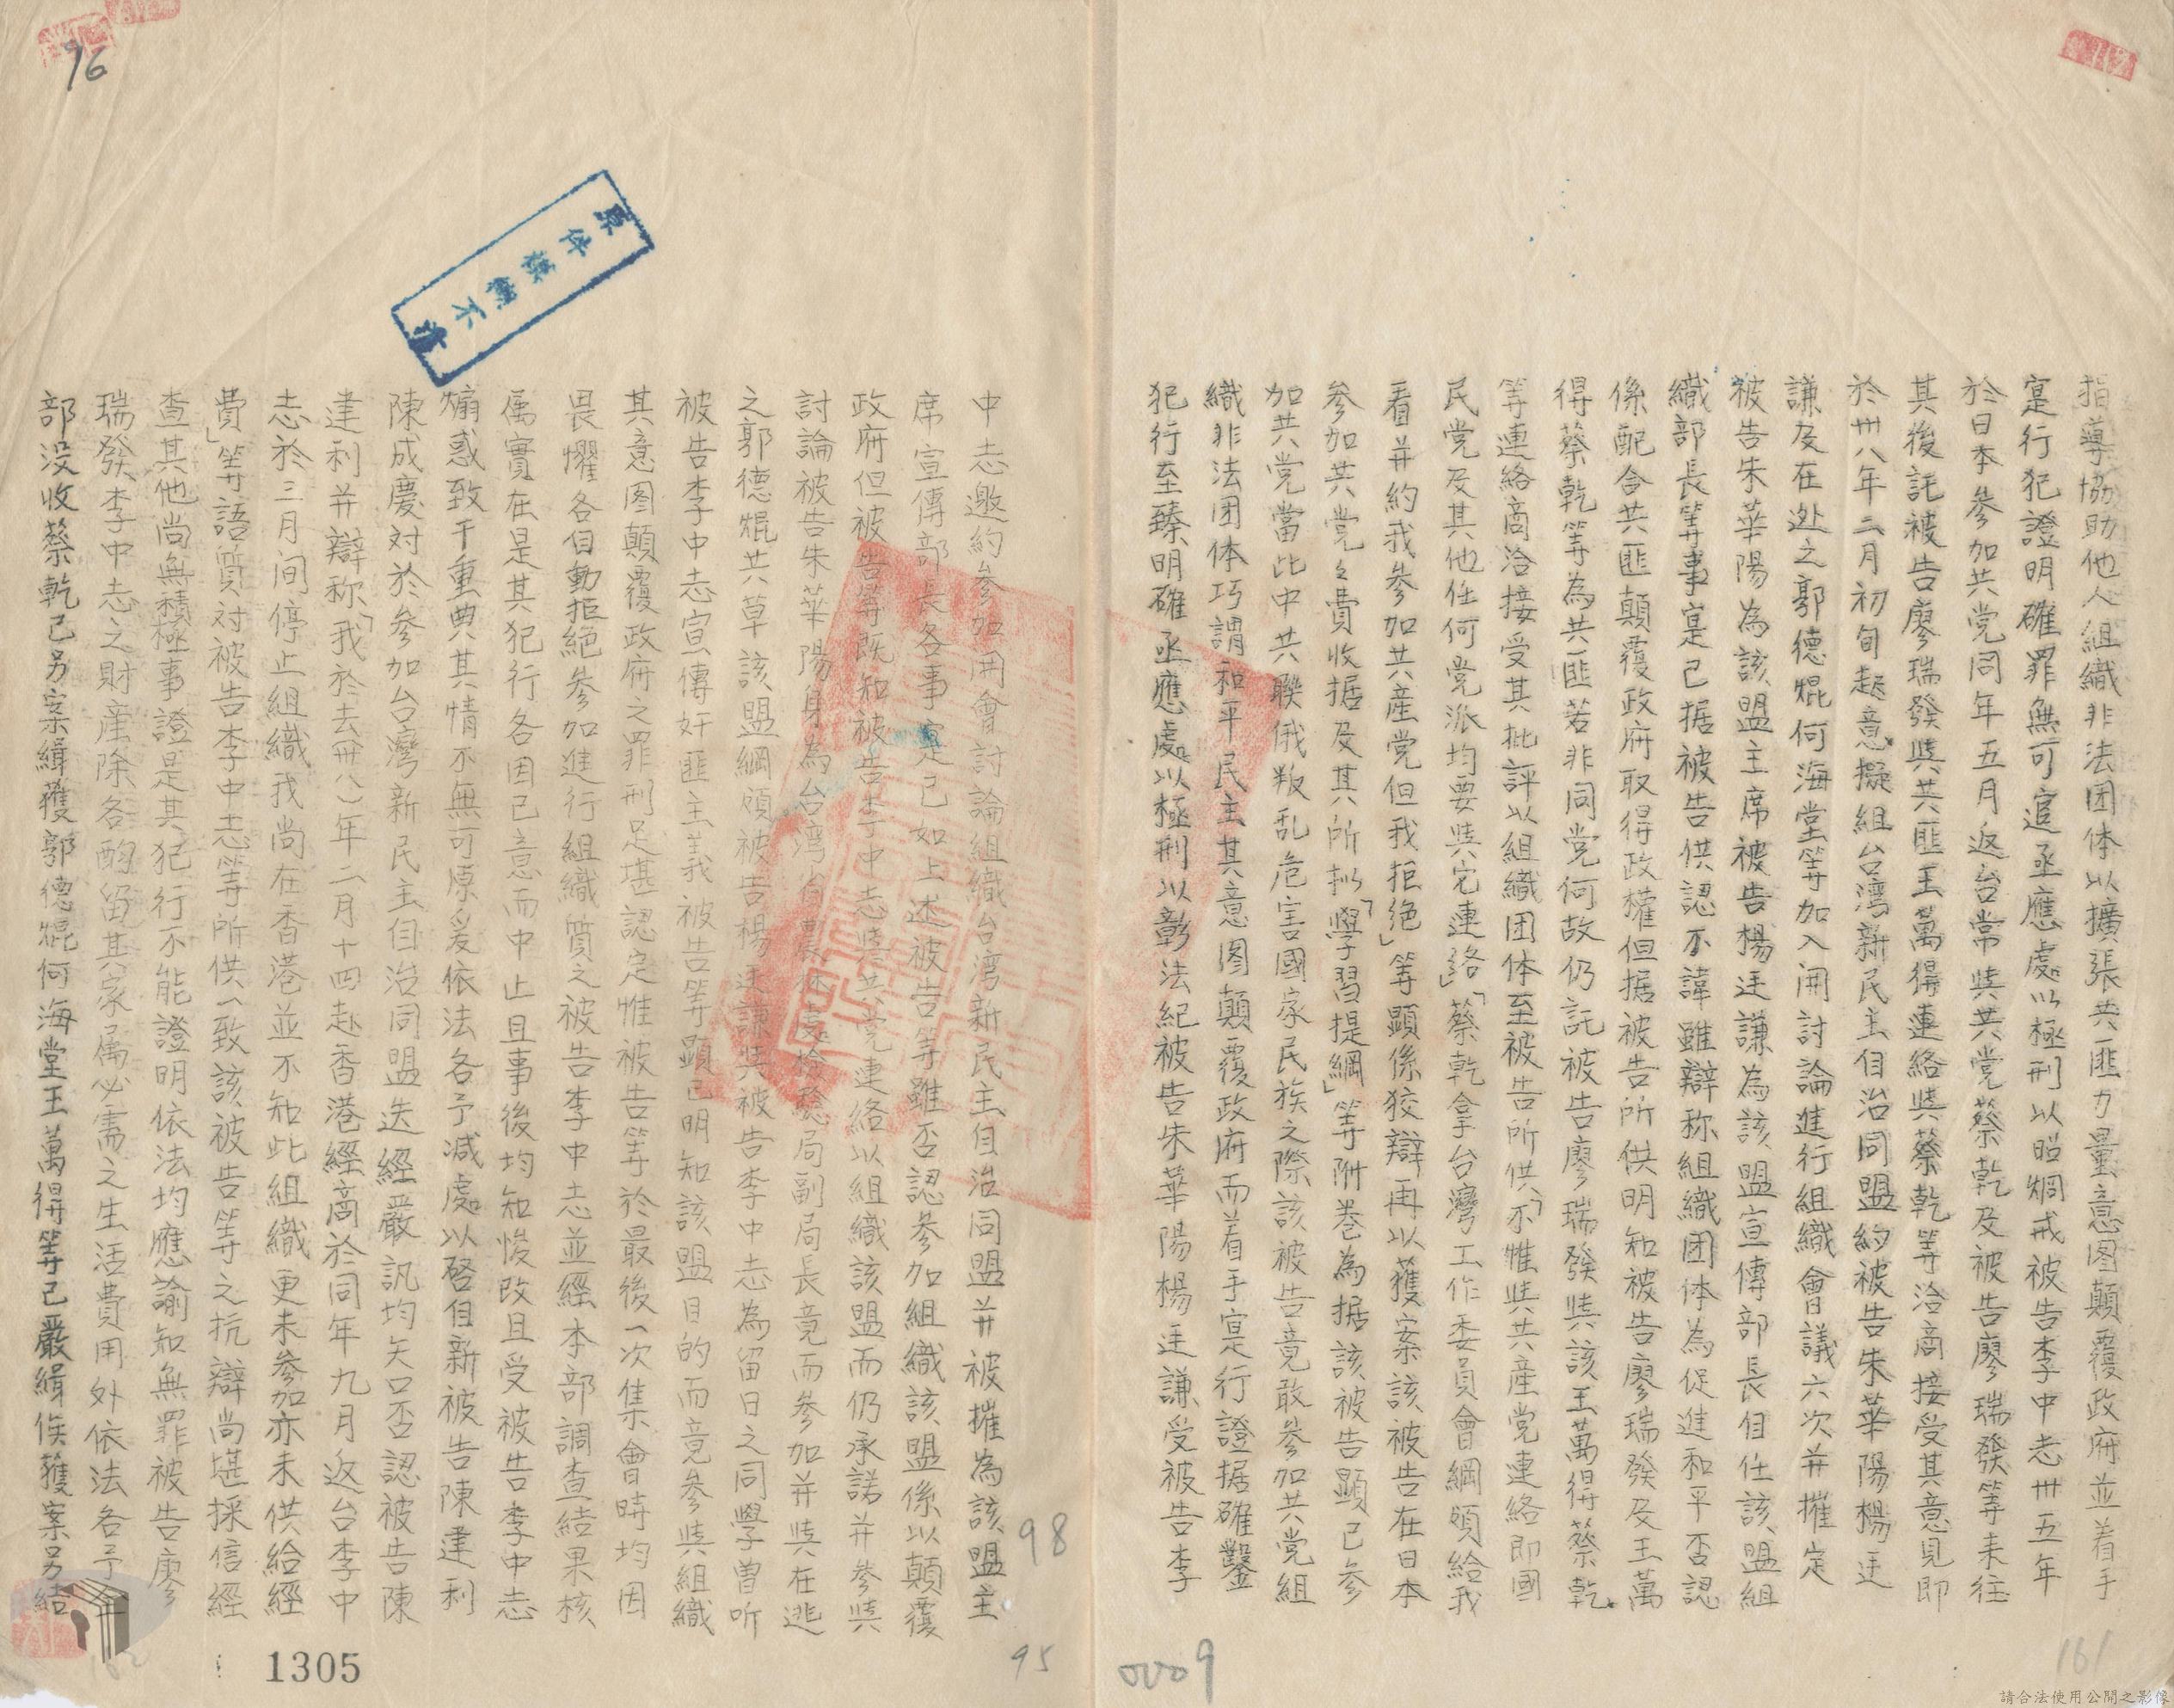 指導協助他人組織非法团体以擴張共匪力量意图顛覆政府並着手
寔行犯證明確罪無可逭丞應處以極刑以昭烱戒被告李中志卅五年
於日本参加共党同年五月返台常與共党蔡乾及被告廖瑞發等来往
其後託被告廖瑞發與共匪王萬得連絡與蔡乾等洽商接受其意見即
於卅八年二月初旬起意擬組台湾新民主自治同盟約被告朱華陽楊廷
謙及在逃之郭德焜何海堂等加入開討論進行組織會議六次并推定
被告朱華陽為該盟主席被告楊廷謙為該盟宣傳部長自任該盟組
織部長等事寔已据被告供認不諱雖辯称組織团体為促進和平否認
係配合共匪顛覆政府取得政權但据被告所供明知被告廖瑞發及王萬
得蔡乾等為共匪若非同党何故仍託被告廖瑞發與該王萬得蔡乾
等連絡商洽接受其批評以組織团体至被告所供「不惟與共產党連絡即國
民党及其他任何党派均要與它連絡」「蔡乾拿台灣工作委員會綱領給我
看并約我参加共產党但我拒绝」等顯係狡辯再以獲案該被告在日本
参加共党之費收据及其所拟「學習提綱」等附卷為据該被告顯已参
加共党當此中共聯俄叛乱危害國家民族之際該被告竟敢参加共党組
織非法团体巧謂和平民主其意图顛覆政府而着手寔行證据確鑿
犯行至臻明確丞應處以極刑以彰法紀被告朱華陽楊廷謙受被告李
中志邀約参加開會討論組織台湾新民主自治同盟并被推為該盟主
席宣傳部長各事寔已如上述被告等雖否認参加組織該盟係以顛覆
政府但被告等既知被告李中志與共党連絡以組織該盟而仍承諾并参與
討論被告朱華陽身為台湾省農林處检驗局副局長竟而参加并與在逃
之郭德焜共草該盟綱領被告楊廷謙與被告李中志為留日之同學曽听
被告李中志宣傳奸匪主義被告等顯已明知該盟目的而竟参與組織
其意图顛覆政府之罪刑足堪認定惟被告等於最後一次集會時均因
畏懼各自動拒絕参加進行組織質之被告李中志並經本部調查結果核
属實在是其犯行各因己意而中止且事後均知悛改且受被告李中志
煽惑致干重典其情不無可原爰依法各予減處以啓自新被告陳建利
陳成慶対於参加台灣新民主自治同盟迭經嚴訊均矢口否認被告陳
建利并辯称「我於去卅八年二月十四赴香港經商於同年九月返台李中
志於三月间停止組織我尚在香港並不知此組織更未参加亦未供給經
費」等語質対被告李中志等所供一致該被告等之抗辯尚堪採信經
查其他尚無積極事證是其犯行不能證明依法均應諭知無罪被告廖
瑞發李中志之財產除各酌留其家属必需之生活費用外依法各予全
部没收蔡乾已另案緝獲郭德焜何海堂王萬得等已嚴緝俟獲案另結
原件模糊不清
96
98
95
0009
161
1305
請合法使用公開之影像